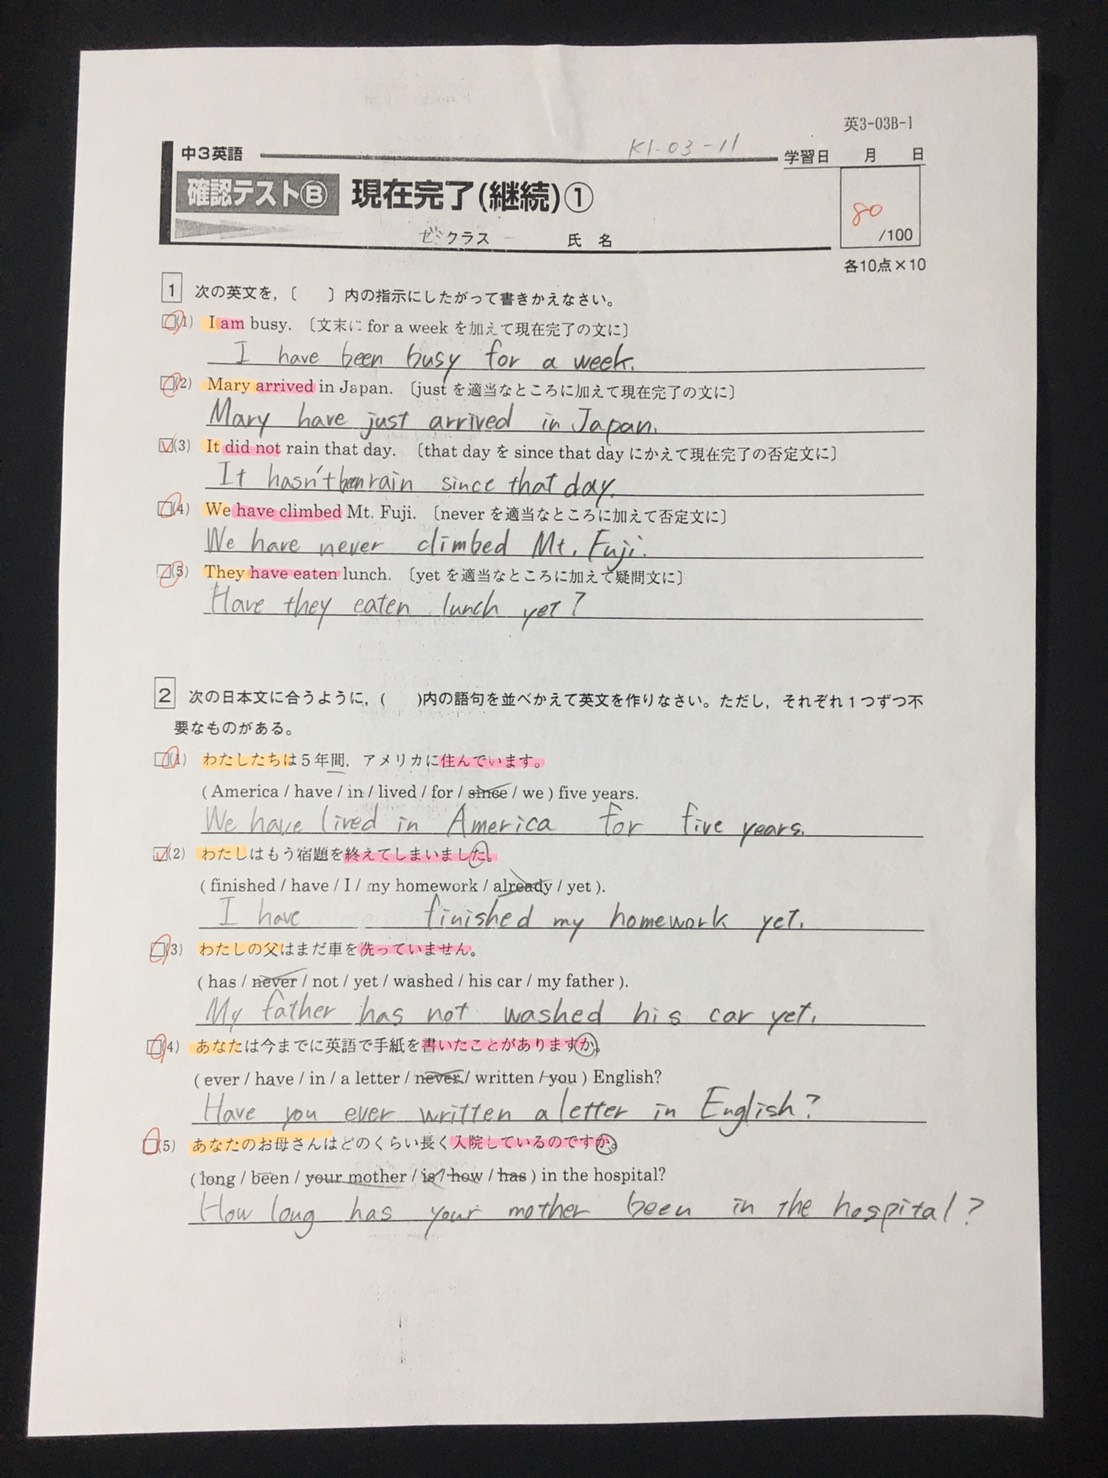 英3-03B-1
中3英語
K1-03-11
学習日 月 日
確認テストⒷ 現在完了(継続)①
80
/100
クラス 氏 名
各10点×10
1 次の英文を,〔 〕内の指示にしたがって書きかえなさい。
□(1) I am busy. 〔文末に for a week を加えて現在完了の文に〕
I have been busy for a week.
□(2) Mary arrived in Japan. 〔just を適当なところに加えて現在完了の文に〕
Mary have just arrived in Japan.
□(3) It did not rain that day. 〔that day を since that day にかえて現在完了の否定文に〕
It hasn't been rain since that day.
□(4) We have climbed Mt. Fuji. 〔never を適当なところに加えて否定文に〕
We have never climbed Mt. Fuji.
□(5) They have eaten lunch. 〔yet を適当なところに加えて疑問文に〕
Have they eaten lunch yet?
2 次の日本文に合うように,( )内の語句を並べかえて英文を作りなさい。ただし,それぞれ1つずつ不
要なものがある。
□(1) わたしたちは5年間,アメリカに住んでいます。
( America / have / in / lived / for / since / we ) five years.
We have lived in America for five years.
□(2) わたしはもう宿題を終えてしまいました。
( finished / have / I / my homework / already / yet ).
I have finished my homework yet.
□(3) わたしの父はまだ車を洗っていません。
( has / never / not / yet / washed / his car / my father ).
My father has not washed his car yet.
□(4) あなたは今までに英語で手紙を書いたことがありますか。
( ever / have / in / a letter / never / written / you ) English?
Have you ever written a letter in English?
□(5) あなたのお母さんはどのくらい長く入院しているのですか。
( long / been / your mother / is / how / has ) in the hospital?
How long has your mother been in the hospital?